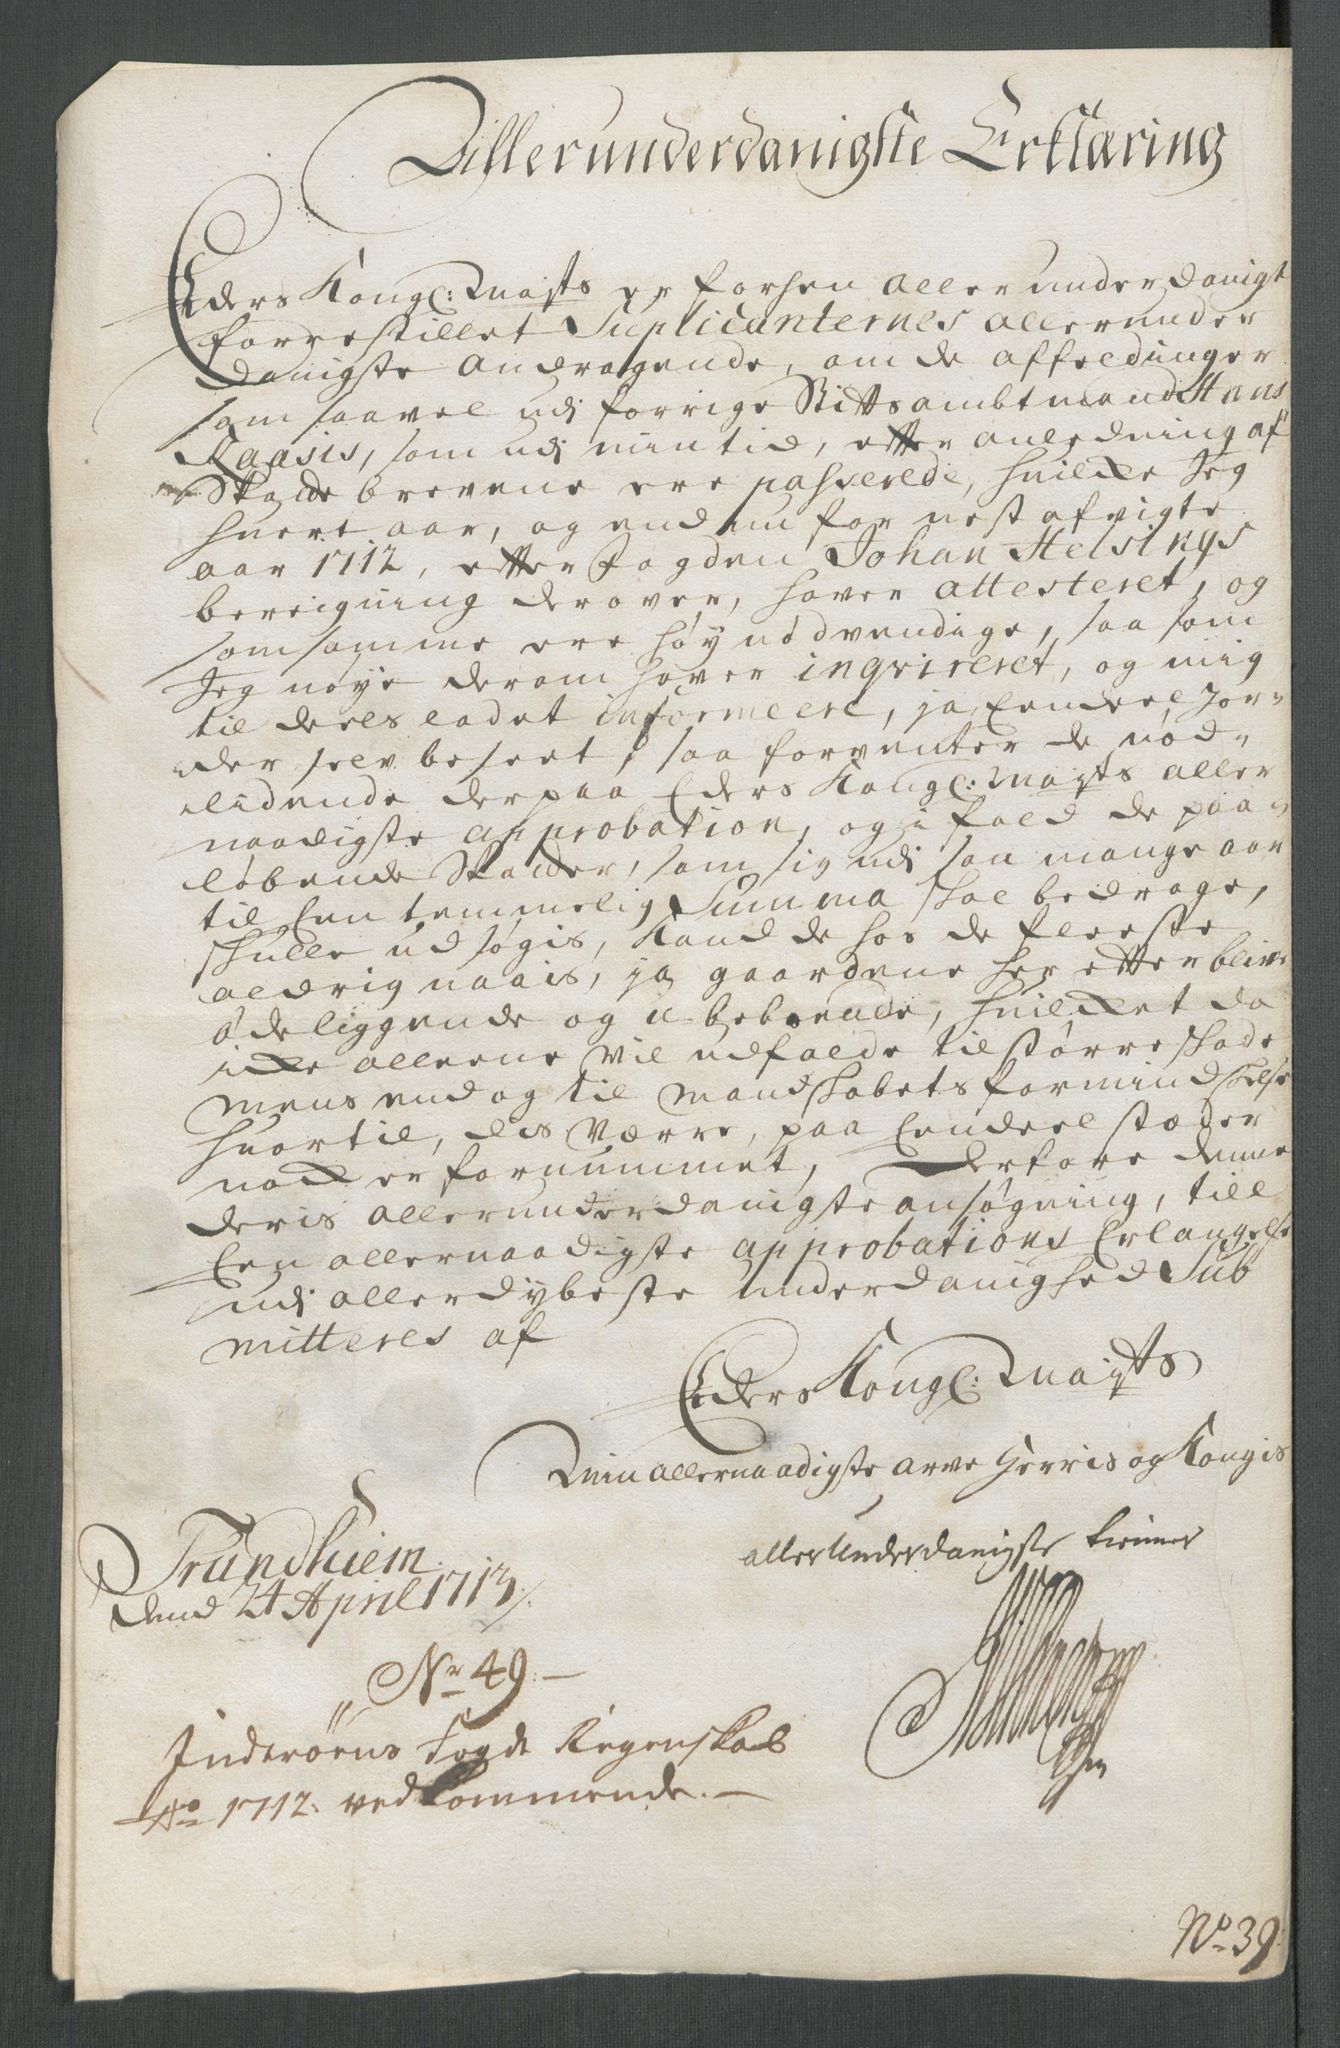 Allerunderdanigste Erklæring
Eders Kongl: Maysts er forhen allerunderdanigt
forrestillet Suplicanternes allerunder
danigste andragende, om de affeldinger
som saavel udi forrige Stiftsambtmand Hans
Kaasis, som udi min tid, etter anledning af
Skadebrevene ere passerede, huilcke Jeg
huert aar, og end nu for nest afvigte
aar 1712, etter fogden Johan Helsings
bereigning derover, haver attesteret, og
som samme ere høynødvendige, saa som
Jeg nøye derom haver inqvireret, og mig
til deels ladet informeere, ja Eendeel Jor-
der selv beseet, saa forventer de nød-
lidende derpaa Eders Kongl: Maysts aller
naadigste approbation, og i fald de paa-
løbende Skatter, som sig udi saa mange aar
til Een temmelig Summa skal bedrage,
skulle udsøgis, kand de hos de fleeste
aldrig naais, ja gaardene her etter blive
ødeliggende og u-beboende, huilcket da
icke alleene vil udfalde til større skade
mens end og til Mandskabets formindskelse
huortil, dis værre, paa Eendeel stæder
nock er fornummet, Derfore denne
deris allerunderdanigste ansøgning, till
Een allernaadigste approbations Erlangelse
udi allerdybeste underdanighed Sub
mitteres af
Eders Kongl: Maysts
Min allernaadigste arve Herris og Kongis
allerUnderdanigste tienner
Trundhiem
dend 24 April 1713
Nr 49
Inderøens Fogde Regenskab
Ao 1712 vedkommende.
No 39